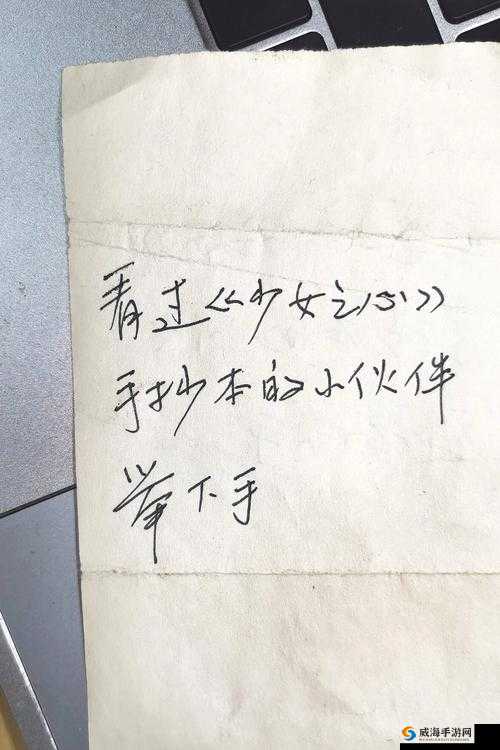 看过《少女之心》
手抄本的小伙伴
举下手
威海手游网